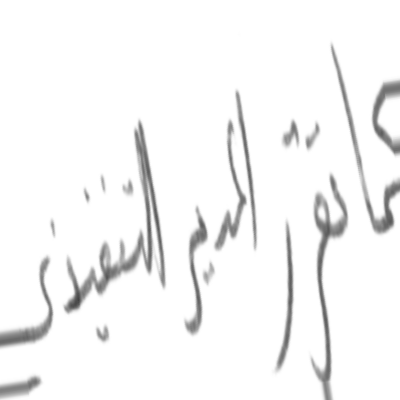 كما تقرر المدير التنفيذي